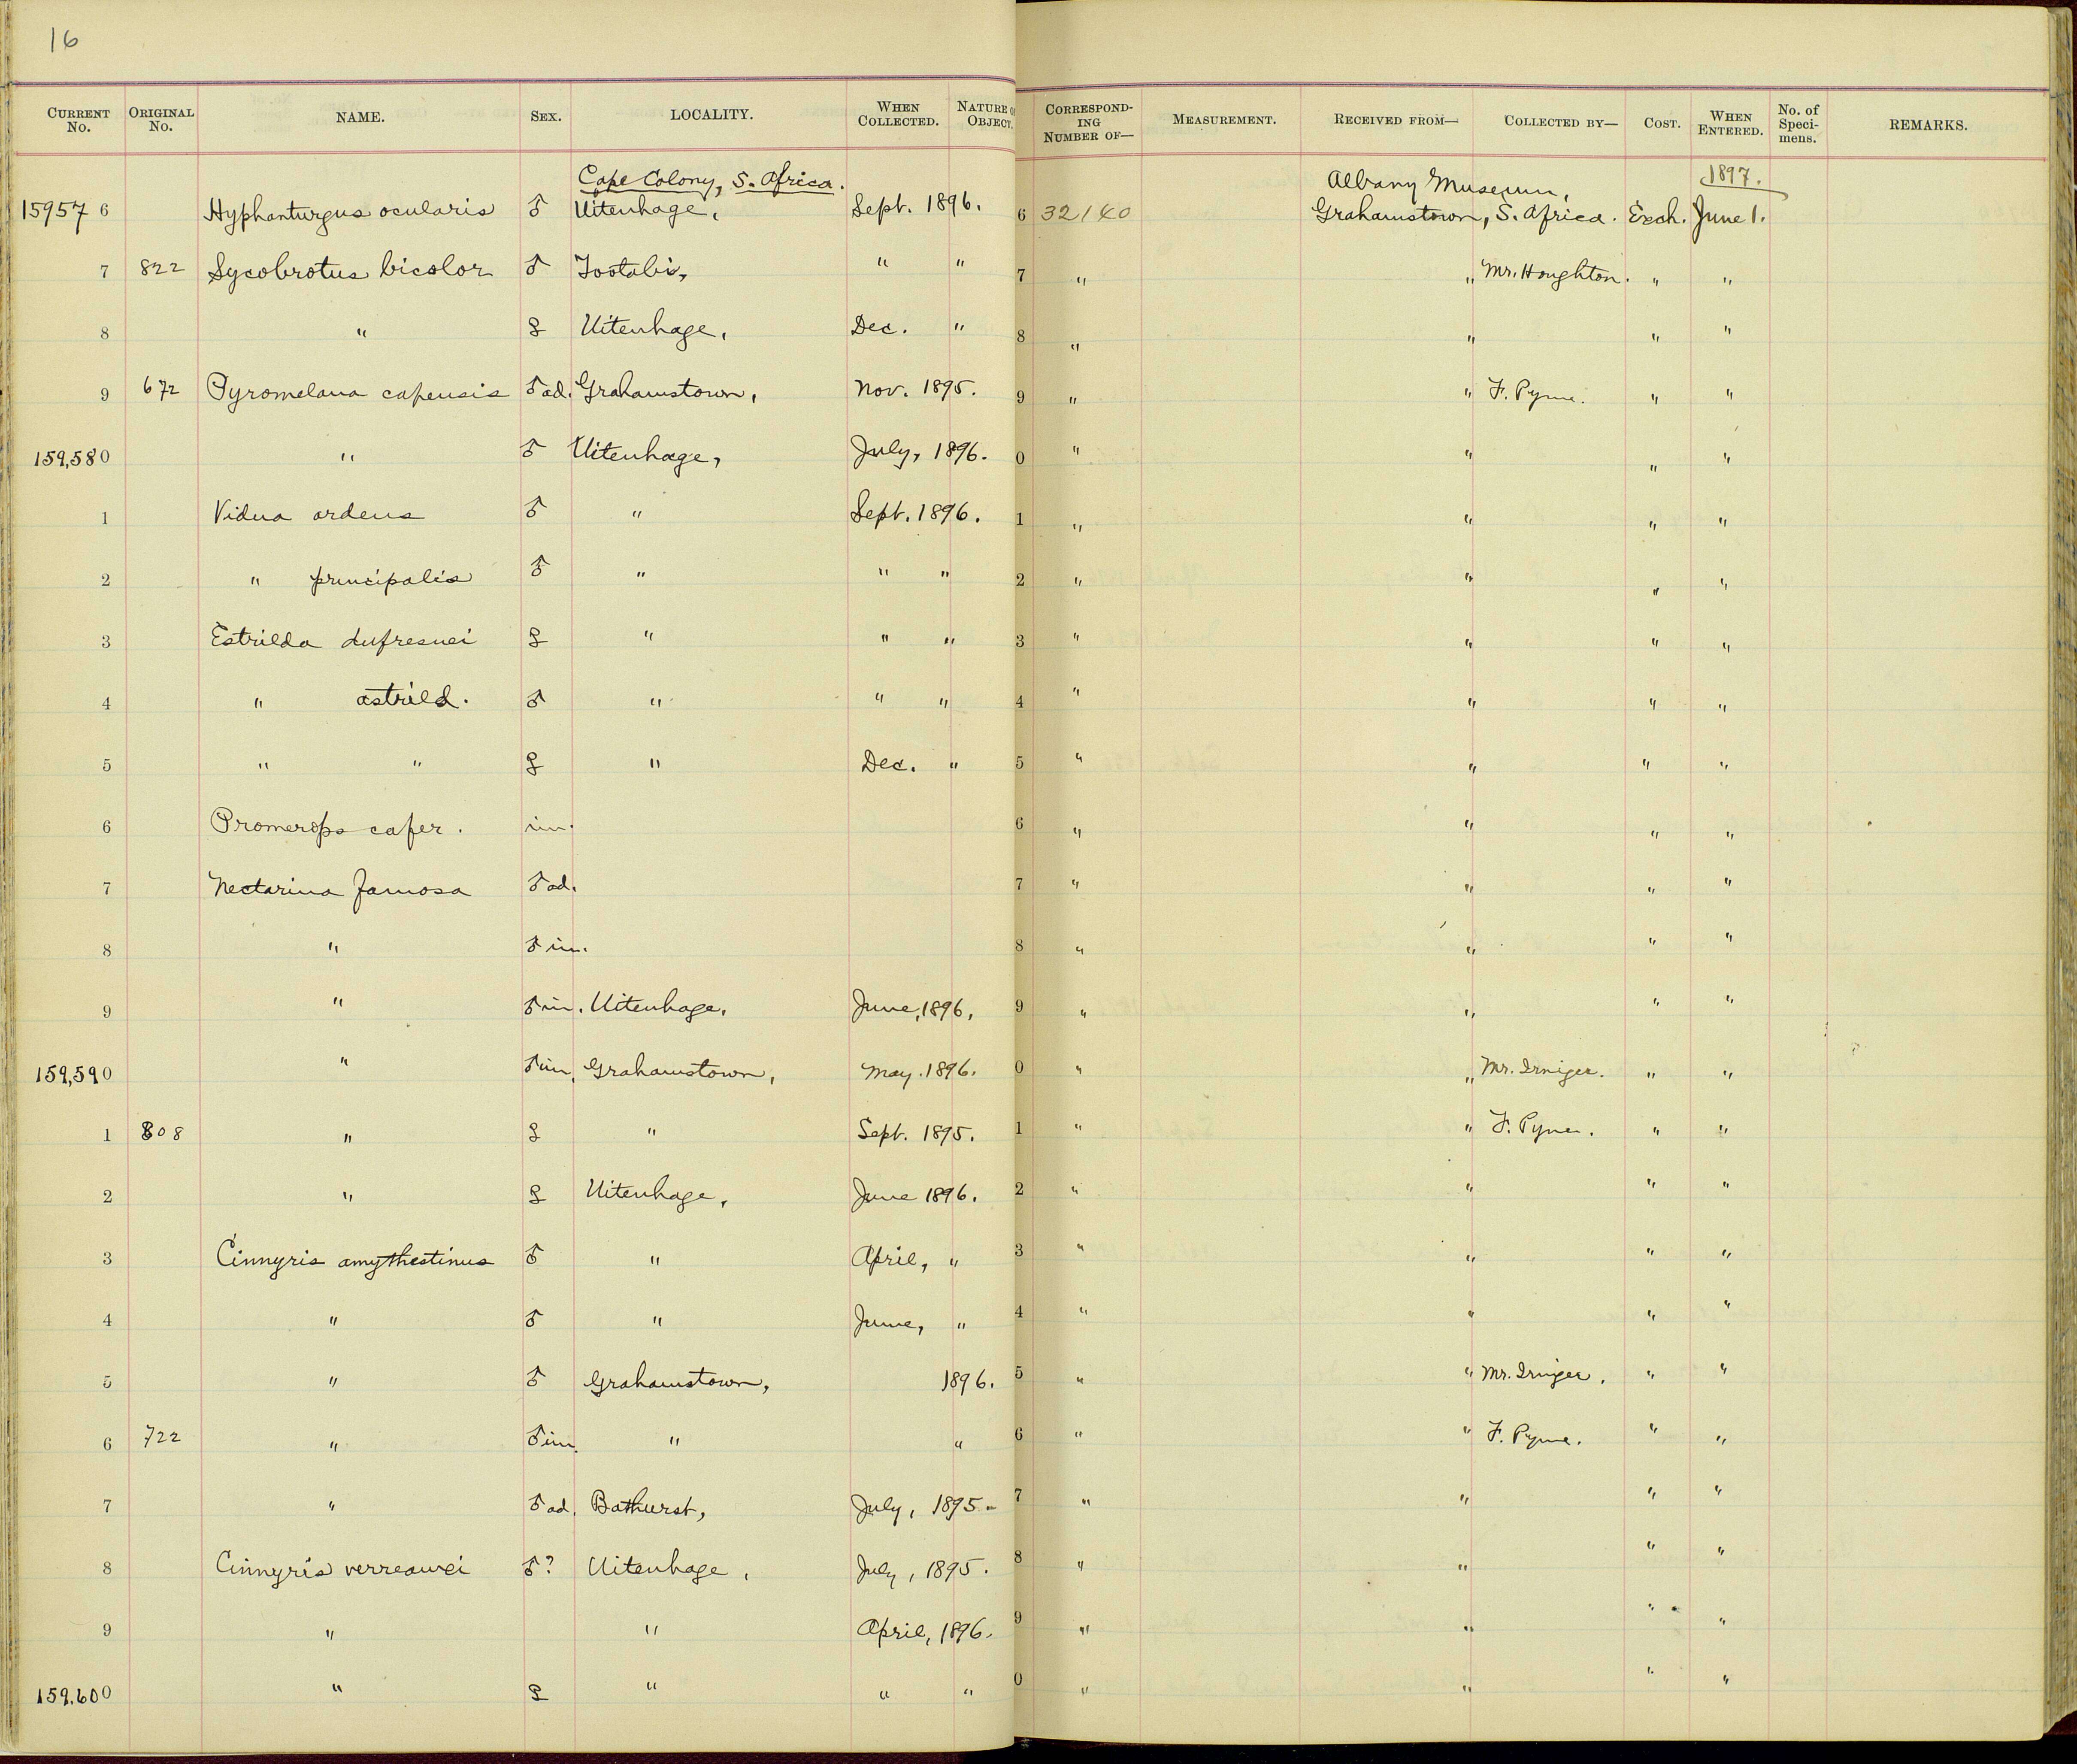 16
CURRENT No. ORIGINAL No. NAME. SEX. LOCALITY. WHEN COLLECTED. NATURE O OBJECT. CORRESPOND-ING NUMBER OF— MEASUREMENT. RECEIVED FROM— COLLECTED BY— COST. WHEN ENTERED. No. of Speci-mens. REMARKS.
Cape Colony, S. Africa. Albany Museum, 1897.
159576 Hyphanturgus ocularis ♂ Uitenhage, Sept. 1896. 6 32140 Grahamstown, S. Africa. Exch. June 1.
7 822 Sycobrotus bicolor ♂ Tootabi, " " 7 " " Mr. Houghton. " "
8 " ♀ Uitenhage, Dec. " 8 " " " "
9 672 Pyromelana capensis ♂ ad. Grahamstown, Nov. 1895. 9 " " F. Pyme. " "
159,580 " ♂ Uitenhage, July, 1896. 0 " " " "
1 Vidua ardens ♂ " Sept. 1896. 1 " " " "
2 " principalis ♂ " " " 2 " " " "
3 Estrilda dufresnei ♀ " " " 3 " " " "
4 " astrild. ♂ " " " 4 " " " "
5 " " ♀ " Dec. " 5 " " " "
6 Promerops cafer. im. 6 " " " "
7 Nectarina famosa ♂ ad. 7 " " " "
8 " ♂ im. 8 " " " "
9 " ♂ im. Uitenhage. June, 1896, 9 " " " "
159,590 " ♂ im, Grahamstown, May. 1896. 0 " " Mr. Irniger. " "
1 808 " ♀ " Sept. 1895. 1 " " F. Pyme. " "
2 " ♀ Uitenhage, June 1896. 2 " " " "
3 Cinnyris amythestinus ♂ " April, " 3 " " " "
4 " ♂ " June, " 4 " " " "
5 " ♂ Grahamstown, 1896. 5 " " Mr. Irniger. " "
6 722 " ♂ im. " " 6 " " F. Pyme. " "
7 " ♂ ad. Bathurst, July, 1895- 7 " " " "
8 Cinnyris verreauxi ♂? Uitenhage, July, 1895. 8 " " " "
9 " " April, 1896. 9 " " " "
159,600 " ♀ " " " 0 " " " "